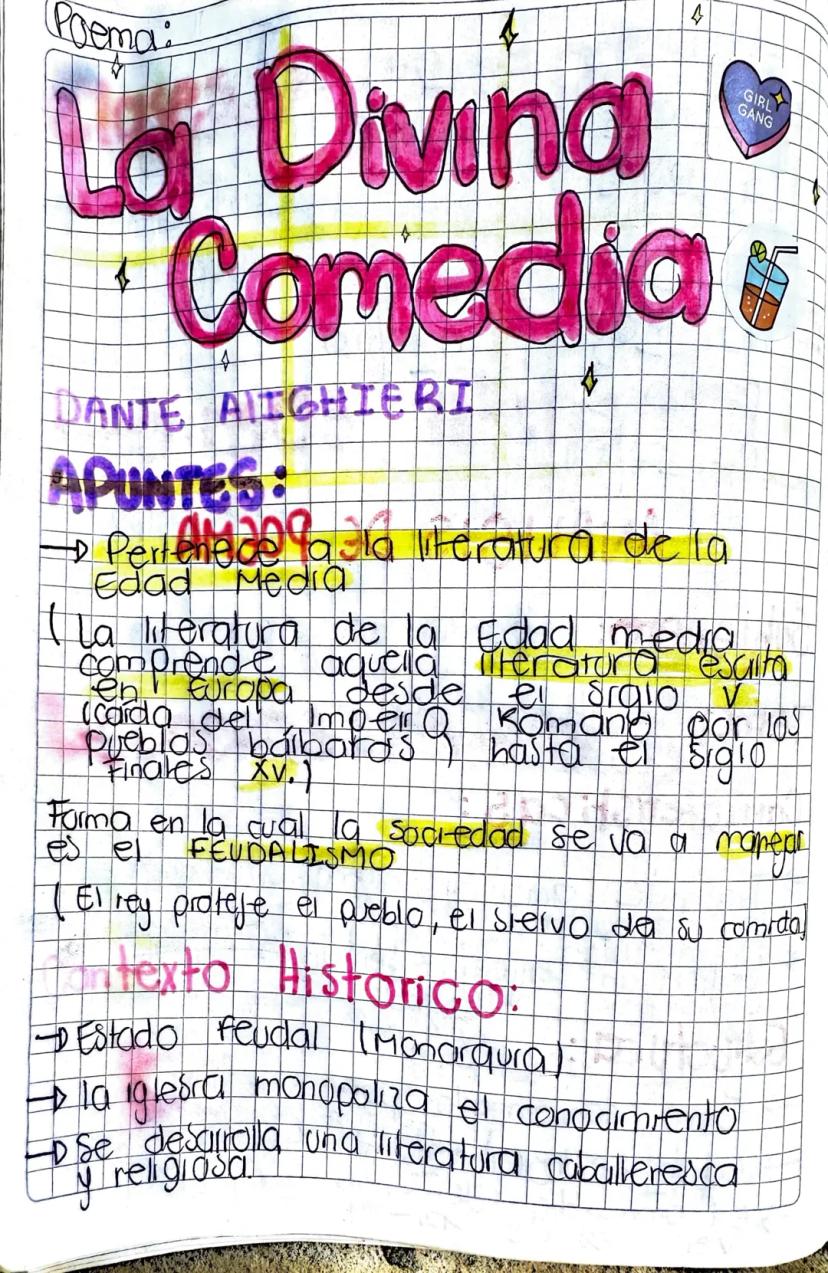 Poema:
La Divina
GIRL
GANG
Comedia
DANTE AlIGHIERI
APUNTES:
→ Pertenece a la literatura de la
Edad Media
(La literatura de la Edad media
comprende aquella literatura escrita
en Europa desde el siglo V
(caída del Imperio Romano por los
pueblos bárbaros) hasta el siglo
finales XV.)
Forma en la cual la sociedad se va a manejar
es el FEUDALISMO
(El rey proteje el pueblo, el siervo da su comida)
Contexto Historico:
→ Estado feudal (Monarquia)
→ la iglesia monopoliza el conocimiento
→ se desarrolla una literatura caballeresca
y religiosa.